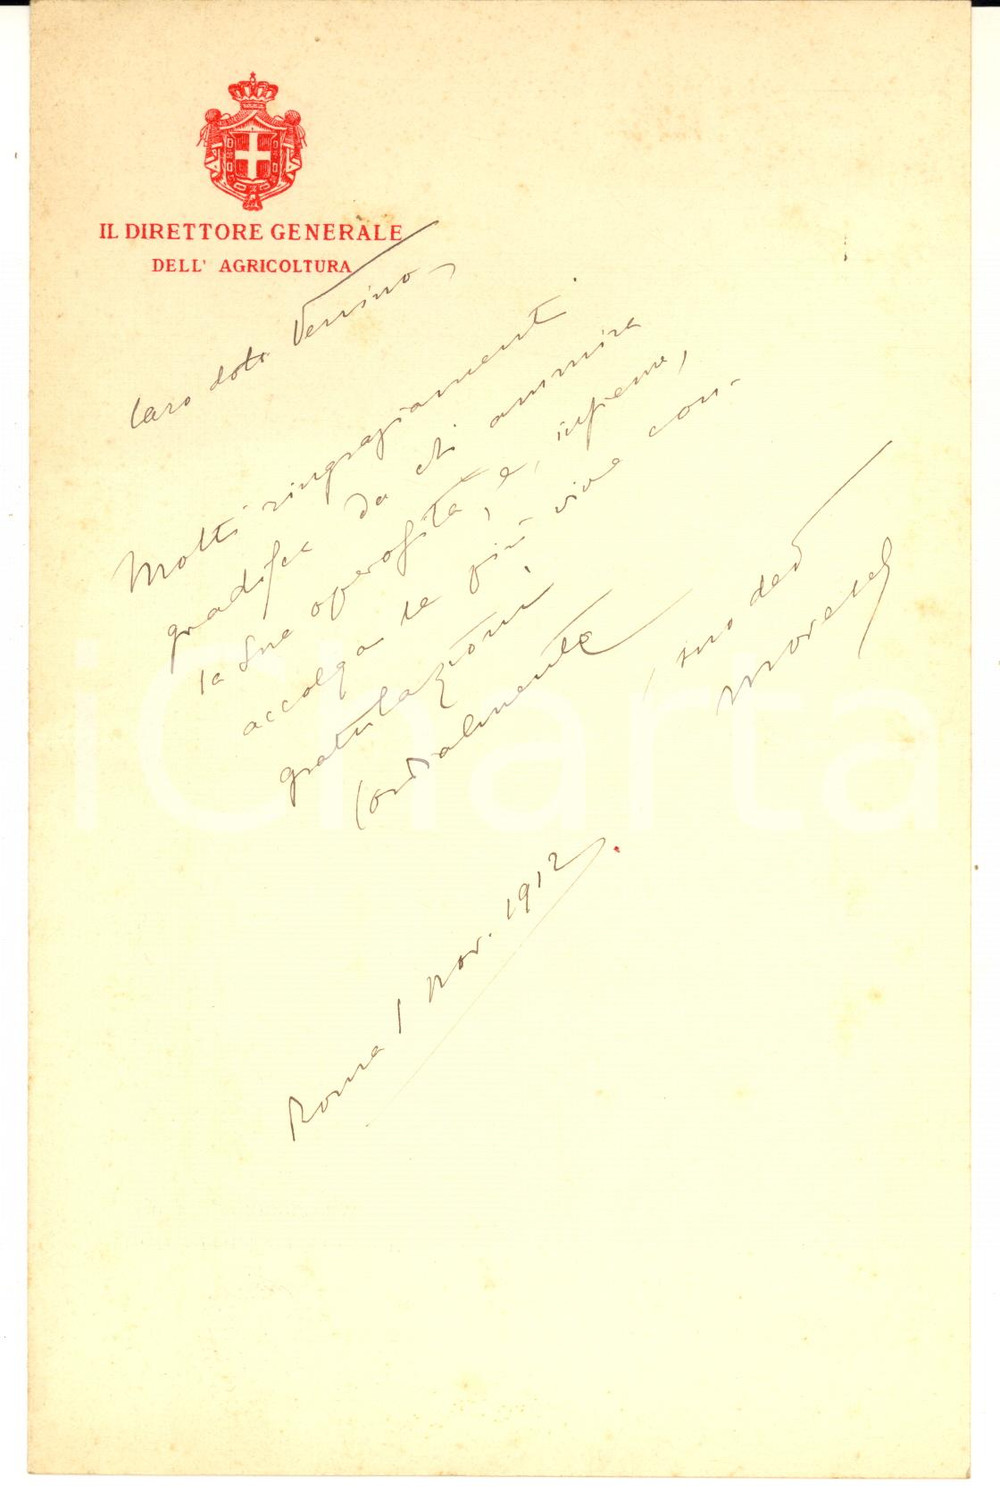 IL DIRETTORE GENERALE
DELL' AGRICOLTURA
Caro dott. Vernino,
Molti ringraziamenti
gradisca da chi ammira
la sua operosità, e, insieme,
accolga le più vive con-
gratulazioni.
Cordialmente
suo dev
Moreschi
Roma 1 Nov. 1912.
iCharta